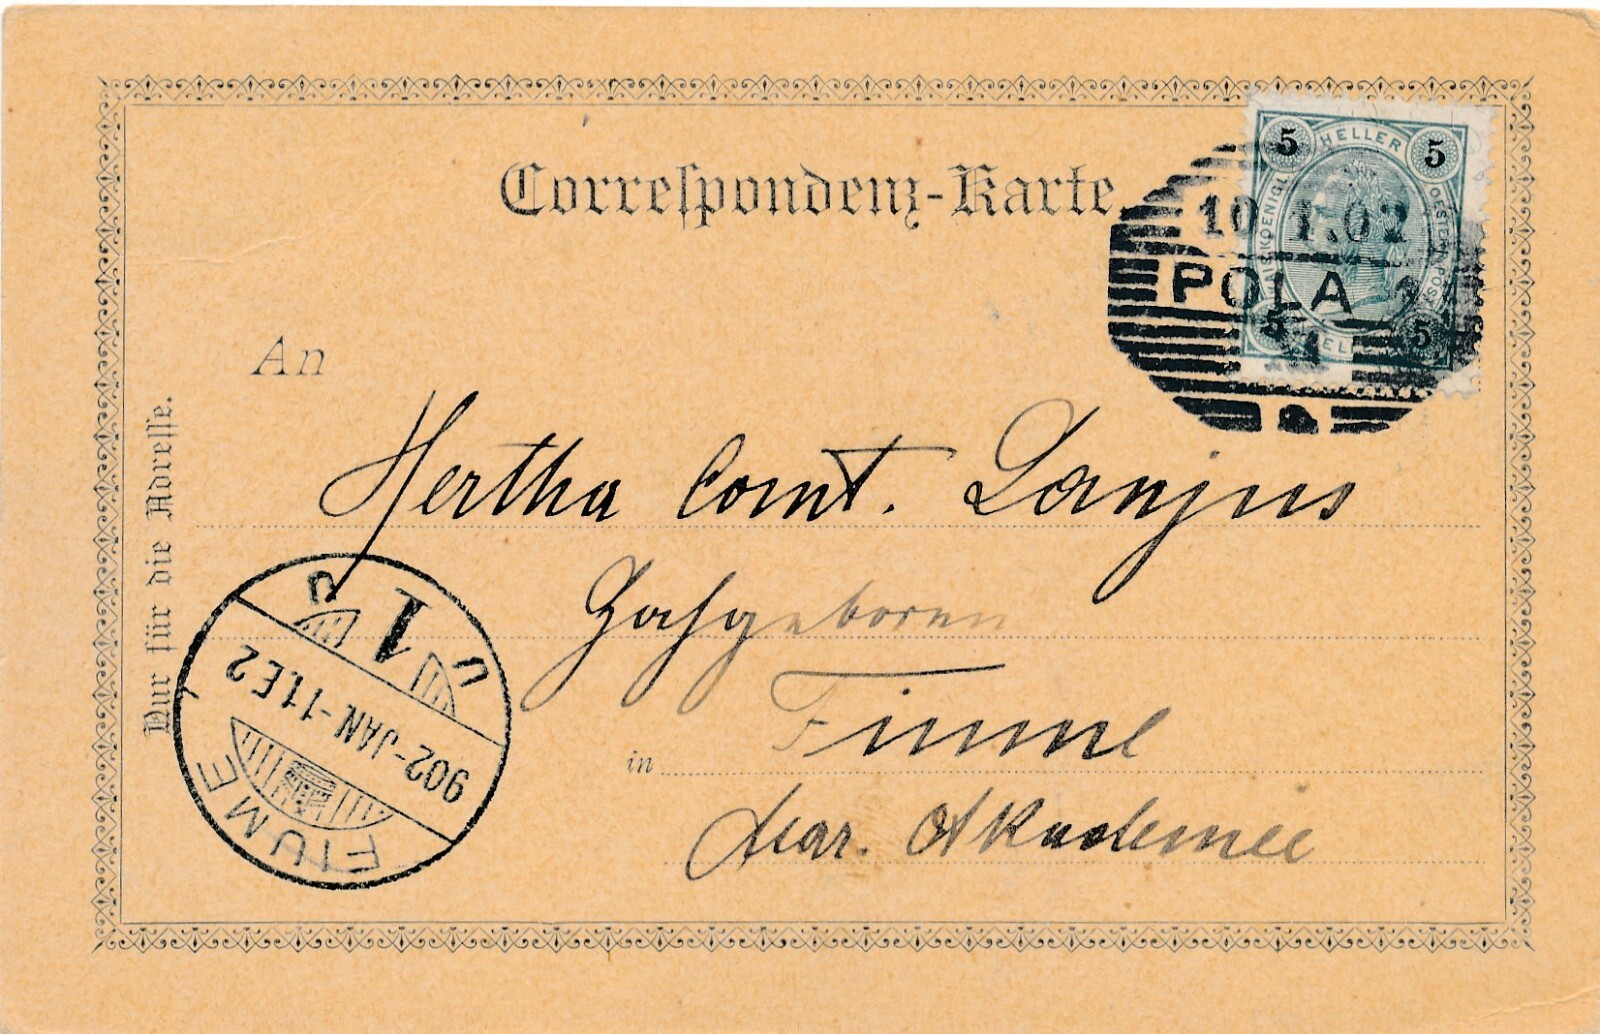 Correspondenz-Karte.
5 HELLER 5
KAIS. KOENIGL. OESTERR. POST
5 HELLER 5
10 1.02
POLA 2
An
Hertha Comt. Lanjus
Hochgeboren
in Fiume
Mar. Akademie
Nur für die Adresse.
FIUME 1
902-JAN-11.E2